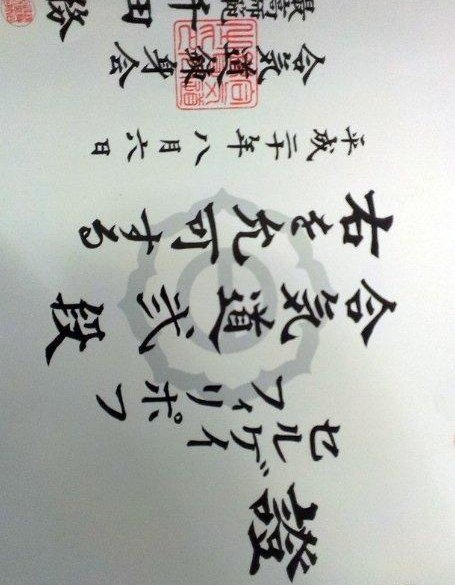 證
セルゲイ
フィリポフ
合気道弐段
右を允可する
平成二十年八月六日
合気道錬身会
最高師範
田務